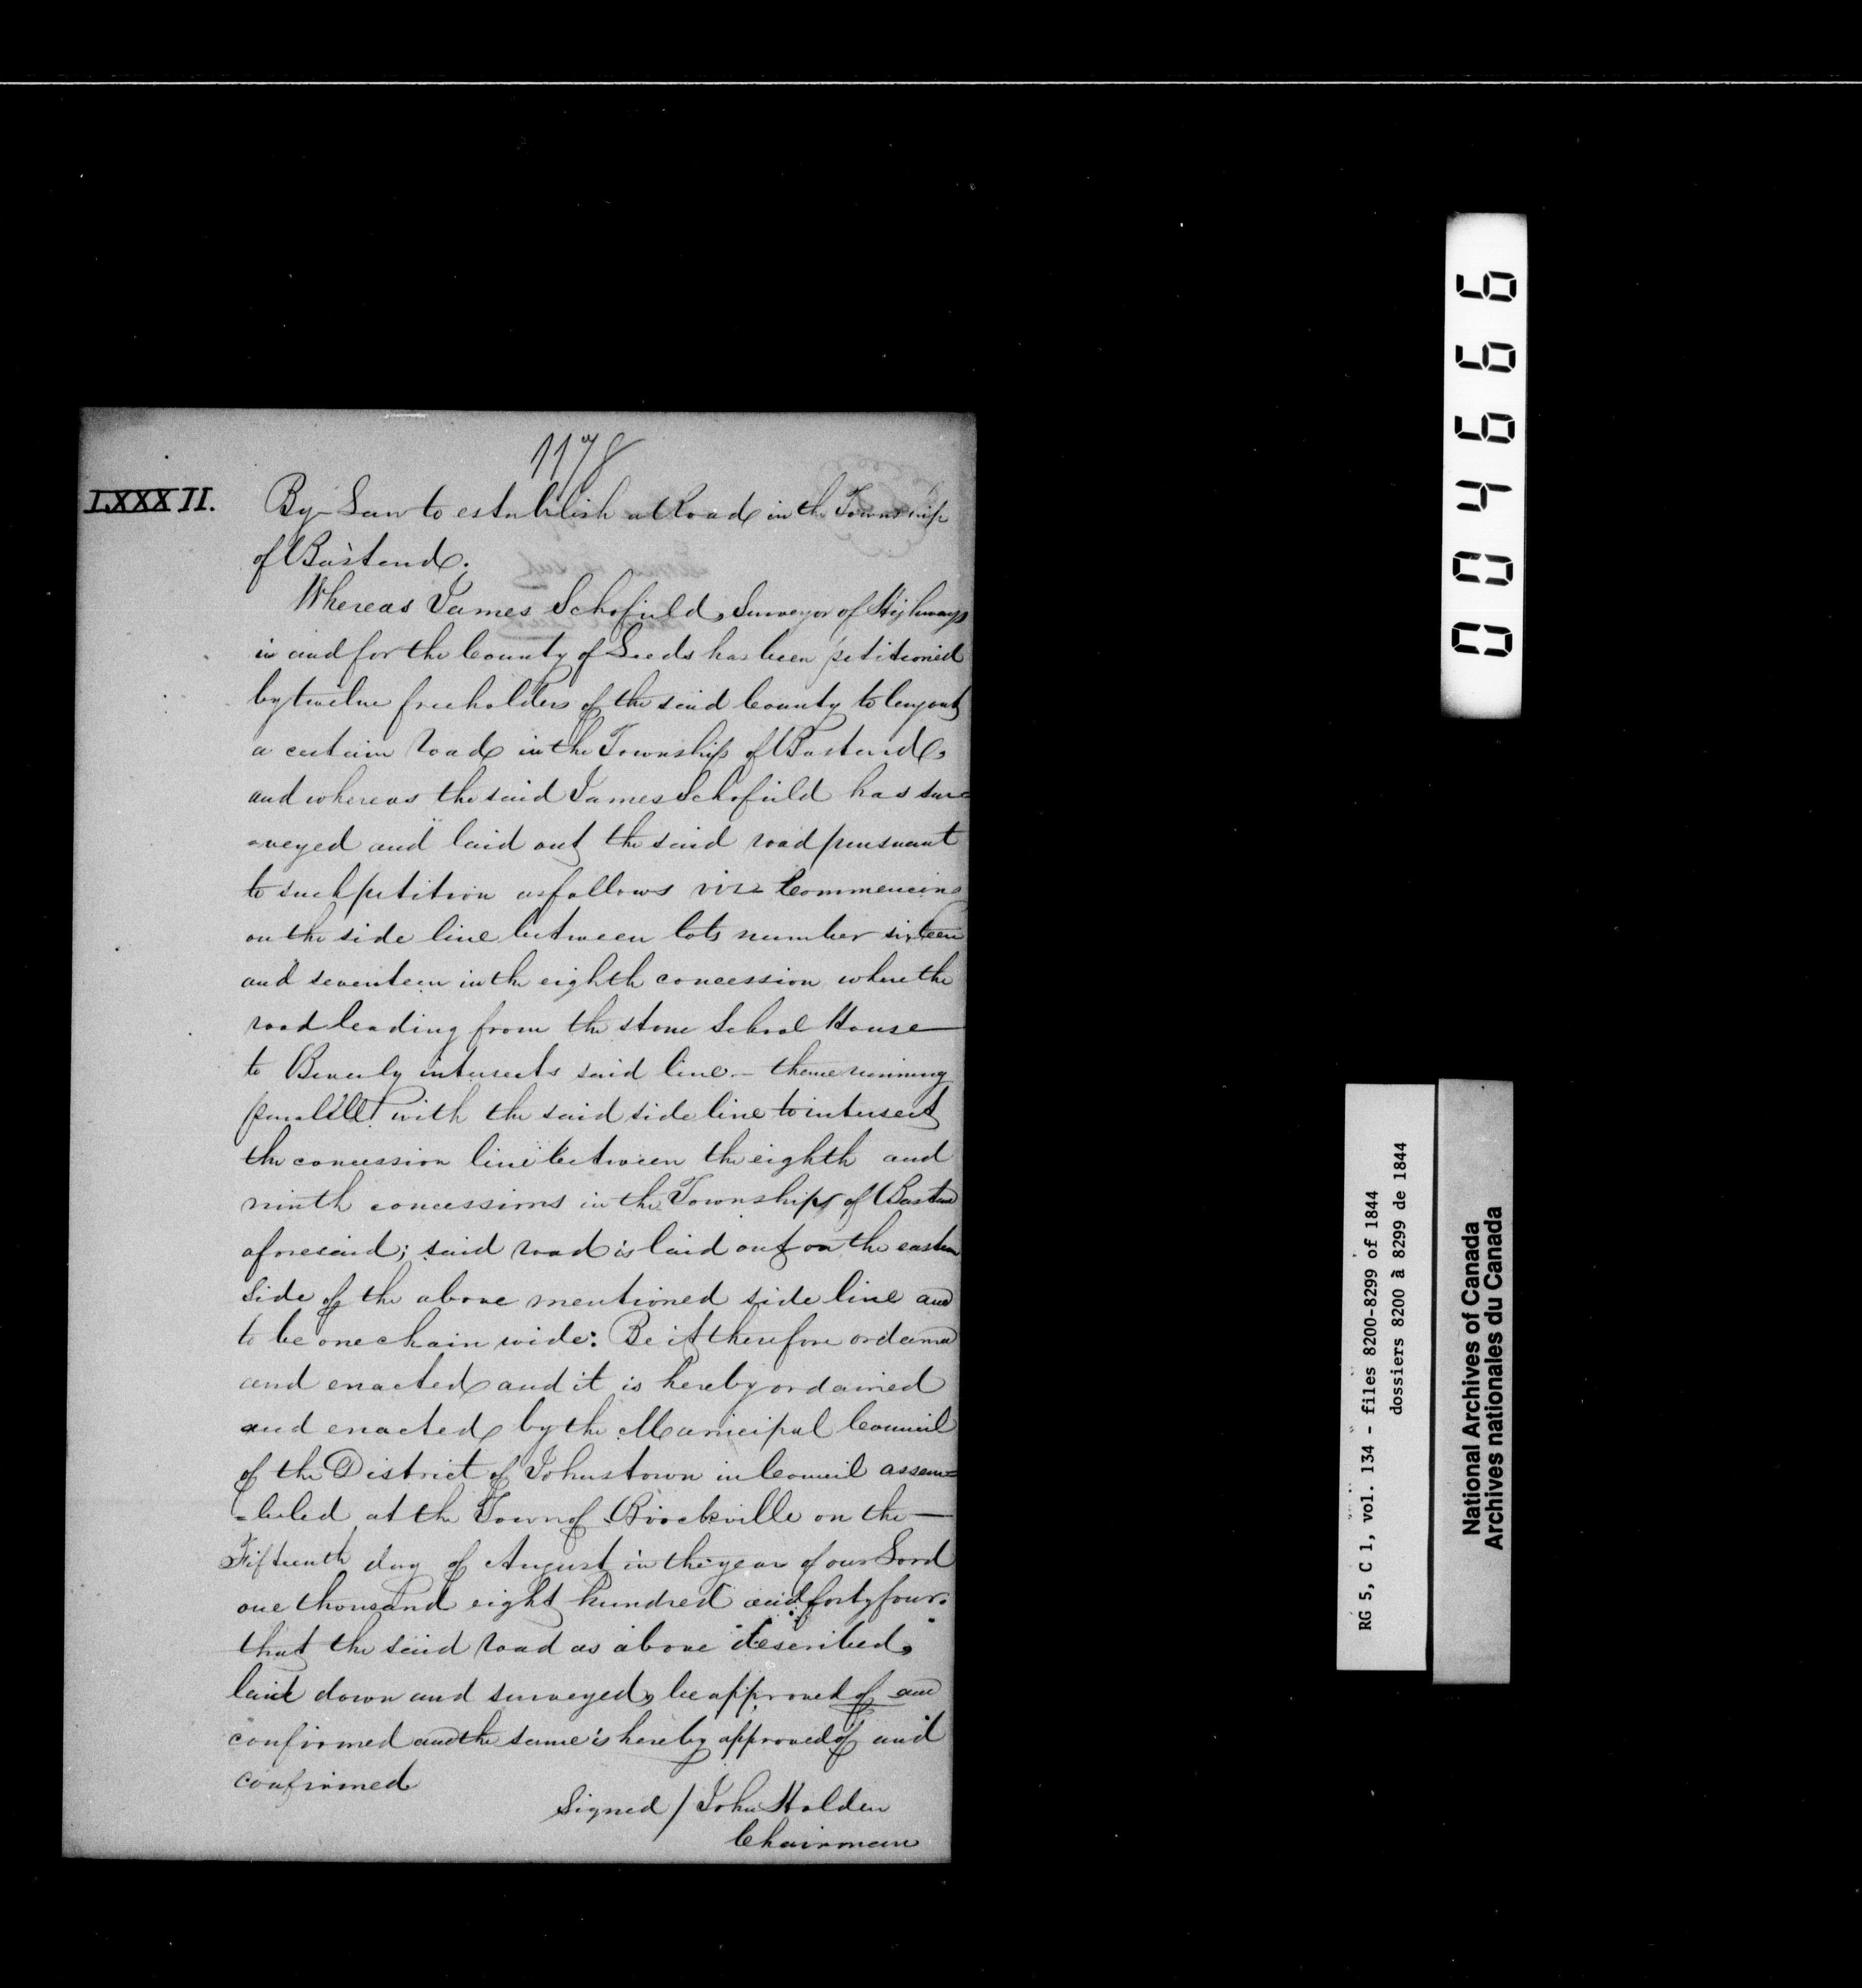 1178
LXXXII.
By-Law to establish a Road in the Township
of Bastard.
Whereas James Schofield, Surveyor of Highways
in and for the County of Leeds has been petitioned
by twelve freeholders of the said County to lay out
a certain road in the Township of Bastard,
and whereas the said James Schofield has sur=
=veyed and laid out the said road pursuant
to such petition as follows viz Commencing
on the side line between lots number sixteen
and seventeen in the eighth concession where the
road leading from the stone School House
to Beverly intersects said line - thence running
parallell with the said side line to intersect
the concession line between the eighth and
ninth concessions in the Township of Bastard
aforesaid; said road is laid out on the eastern
side of the above mentioned side line and
to be one chain wide: Be it therefore ordained
and enacted and it is hereby ordained
and enacted by the Municipal Council
of the District of Johnstown in Council assem=
=bled at the Town of Brockville on the
Fifteenth day of August in the year of our Lord
one thousand eight hundred and forty four.
that the said road as above described,
laid down and surveyed, be approved of and
confirmed and the same is hereby approved of and
confirmed
Signed / John Holden
Chairman
004666
RG 5, C 1, vol. 134 - files 8200-8299 of 1844
dossiers 8200 à 8299 de 1844
National Archives of Canada
Archives nationales du Canada